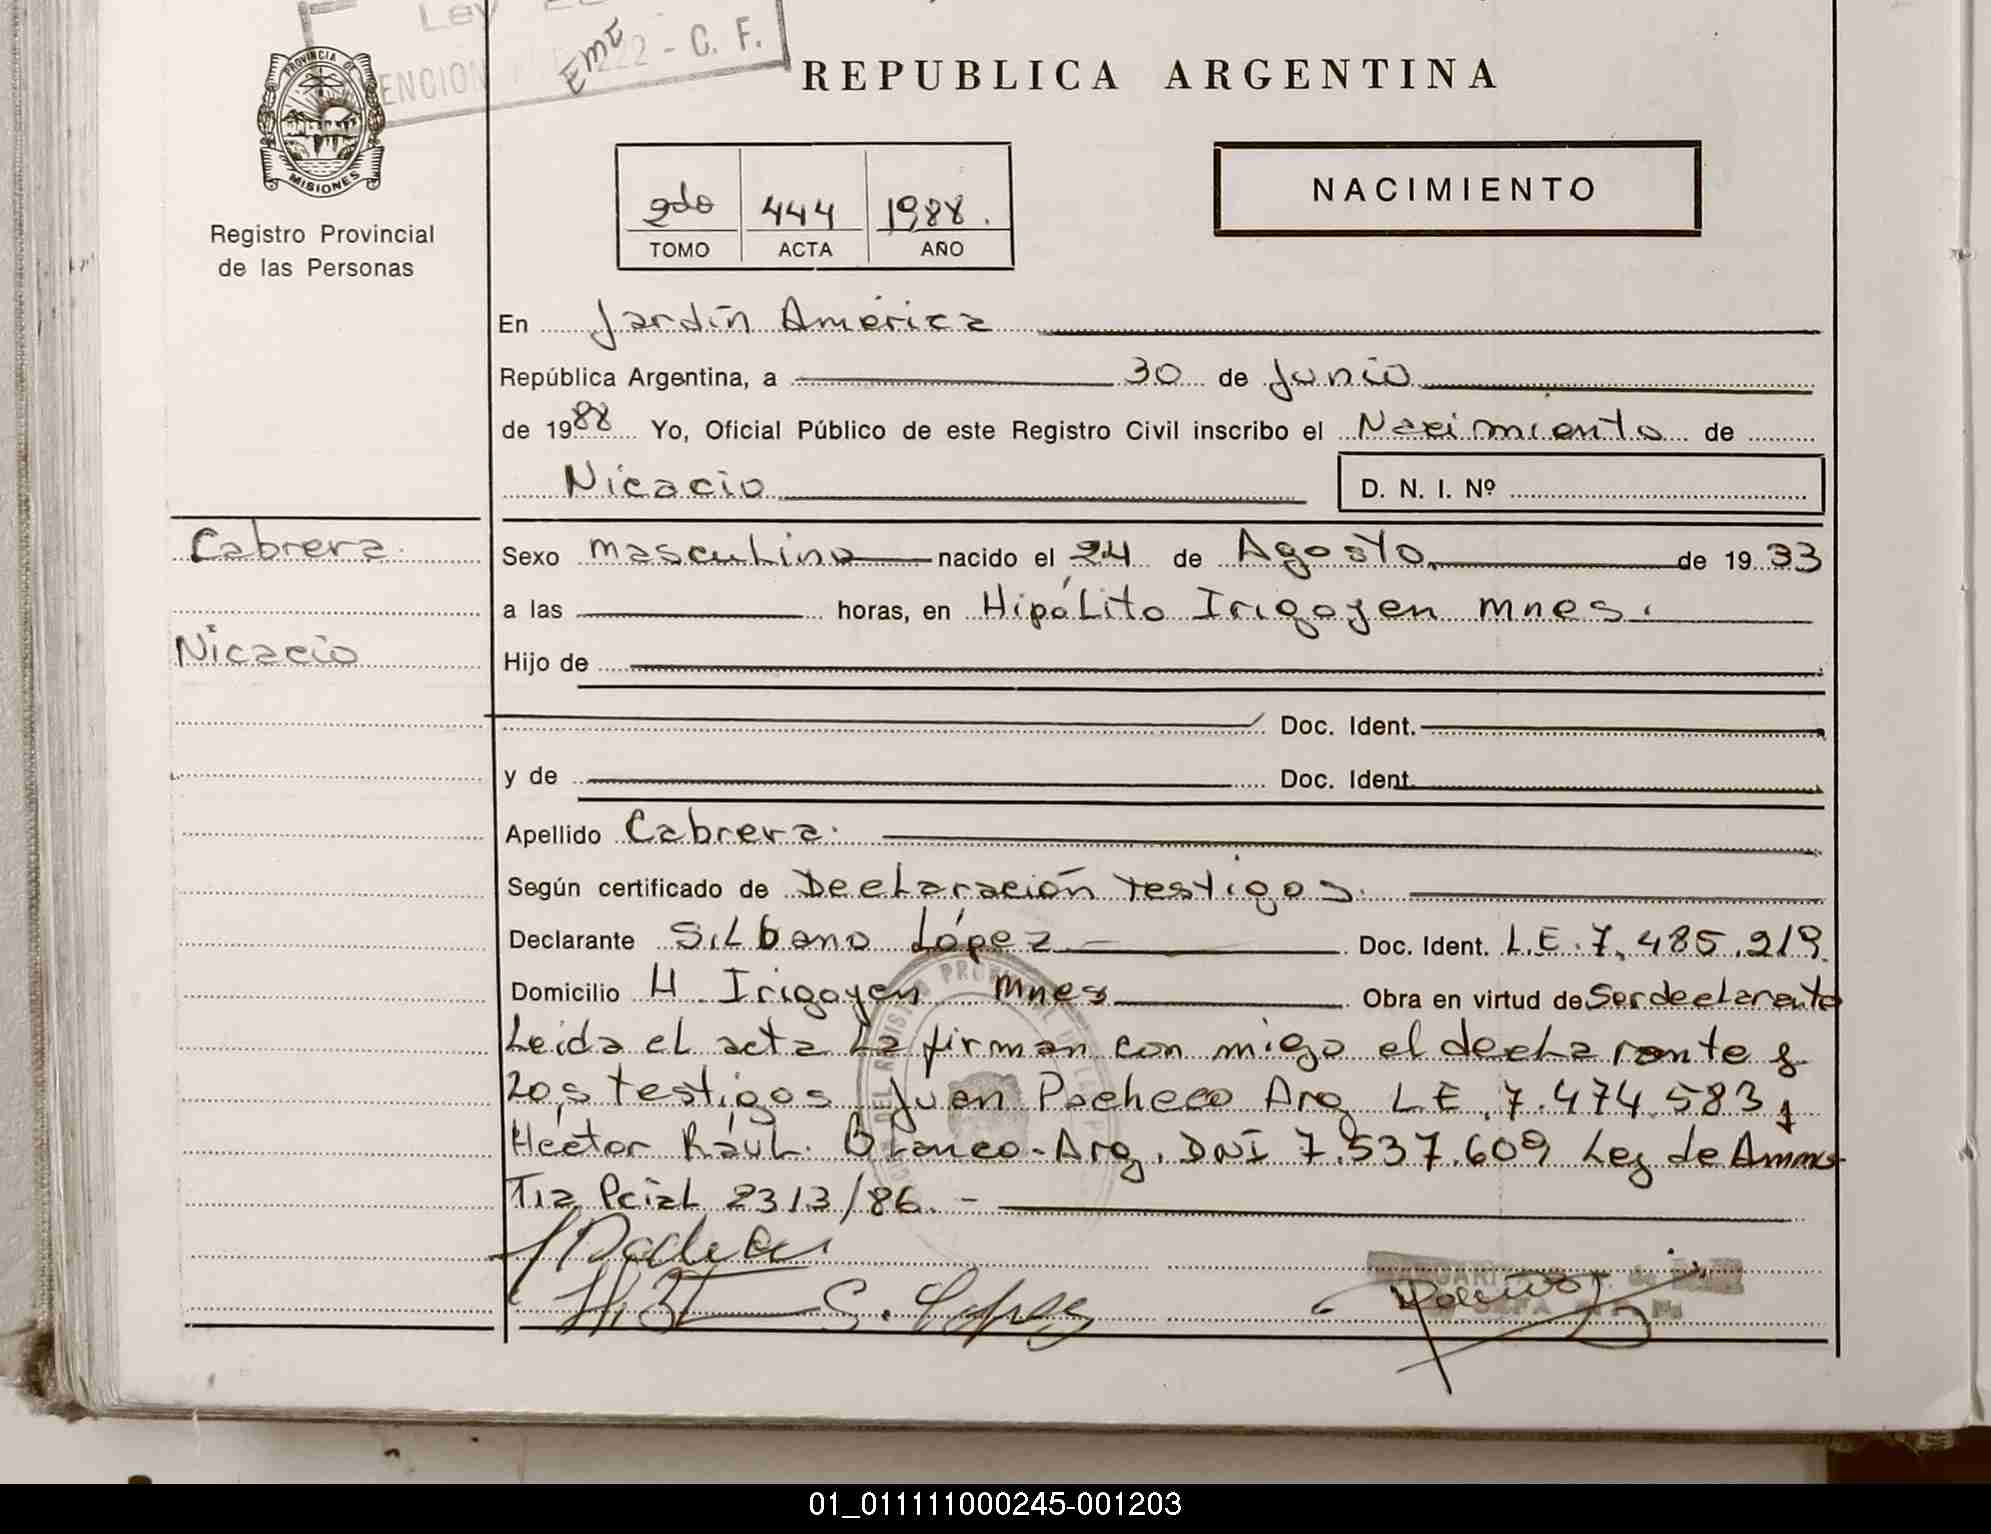 Ley
ENCION 22 - C. F.
EME
PROVINCIA DE
MISIONES
Registro Provincial
de las Personas
REPUBLICA ARGENTINA
NACIMIENTO
2do 444 1988.
TOMO ACTA AÑO
En Jardín América
República Argentina, a 30 de Junio
de 1988 Yo, Oficial Público de este Registro Civil inscribo el Nacimiento de
Nicacio D. N. I. Nº
Cabrera. Sexo masculino nacido el 24 de Agosto de 1933
a las horas, en Hipólito Irigoyen mnes.
Nicacio Hijo de
Doc. Ident.
y de Doc. Ident.
Apellido Cabrera.
Según certificado de Declaración testigos.
Declarante Silbano López Doc. Ident. L.E. 7.485.219
Domicilio H Irigoyen mnes Obra en virtud de Ser declarante
Leida el acta la firman con migo el declarante y
Los testigos Juan Pacheco Arg LE 7.474.583 y
Héctor Raúl Blanco-Arg. DNI 7.537.609 Ley de Amnis
Tia Pcial 2313/86. -
S. Lopez
01_011111000245-001203